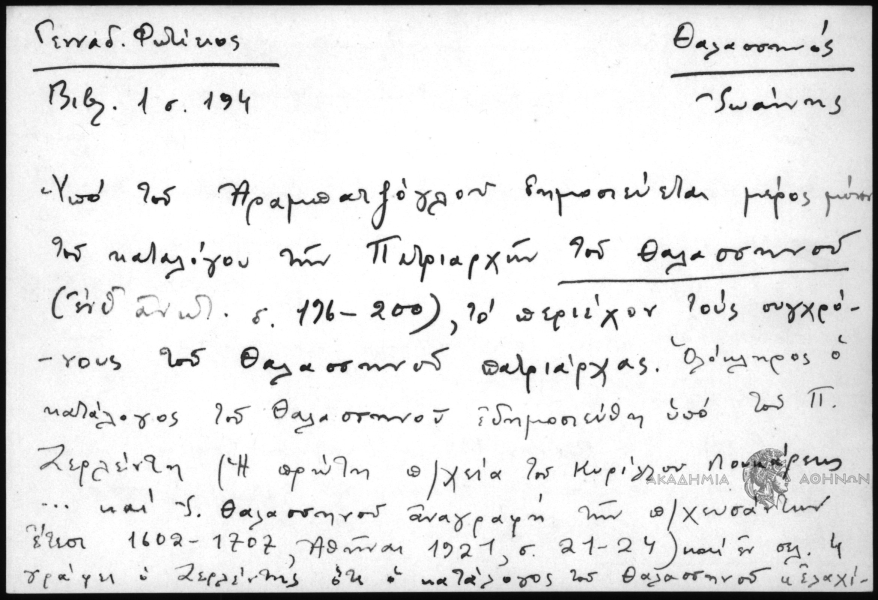 Γενναδ. Φωτίειος
Θαλασσηνός
Βιβλ. 1 σ. 194
Ἰωάννης
Ὑπό τοῦ Ἀραμπατζόγλου δημοσιεύεται μέρος μόνον
τοῦ καταλόγου τῶν Πατριαρχῶν τοῦ Θαλασσηνοῦ
(ἔνθ' ἀνωτ. σ. 196-200), τό περιέχον τούς συγχρό-
-νους τοῦ Θαλασσηνοῦ πατριάρχας. Ὁλόκληρος ὁ
κατάλογος τοῦ Θαλασσηνοῦ ἐδημοσιεύθη ὑπό τοῦ Π.
Ζερλέντη (Ἡ πρώτη π/χεία τοῦ Κυρίλλου Λουκάρεως
... καί Ἰ. Θαλασσηνοῦ ἀναγραφή τῶν π/χευσάντων
ἔτεσι 1602-1707, Ἀθῆναι 1921, σ. 21-24) καί ἐν σελ. 4
γράφει ὁ Ζερλέντης ὅτι ὁ κατάλογος τοῦ Θαλασσηνοῦ ἐλαχί-
ΑΚΑΔΗΜΙΑ ΑΘΗΝΩΝ